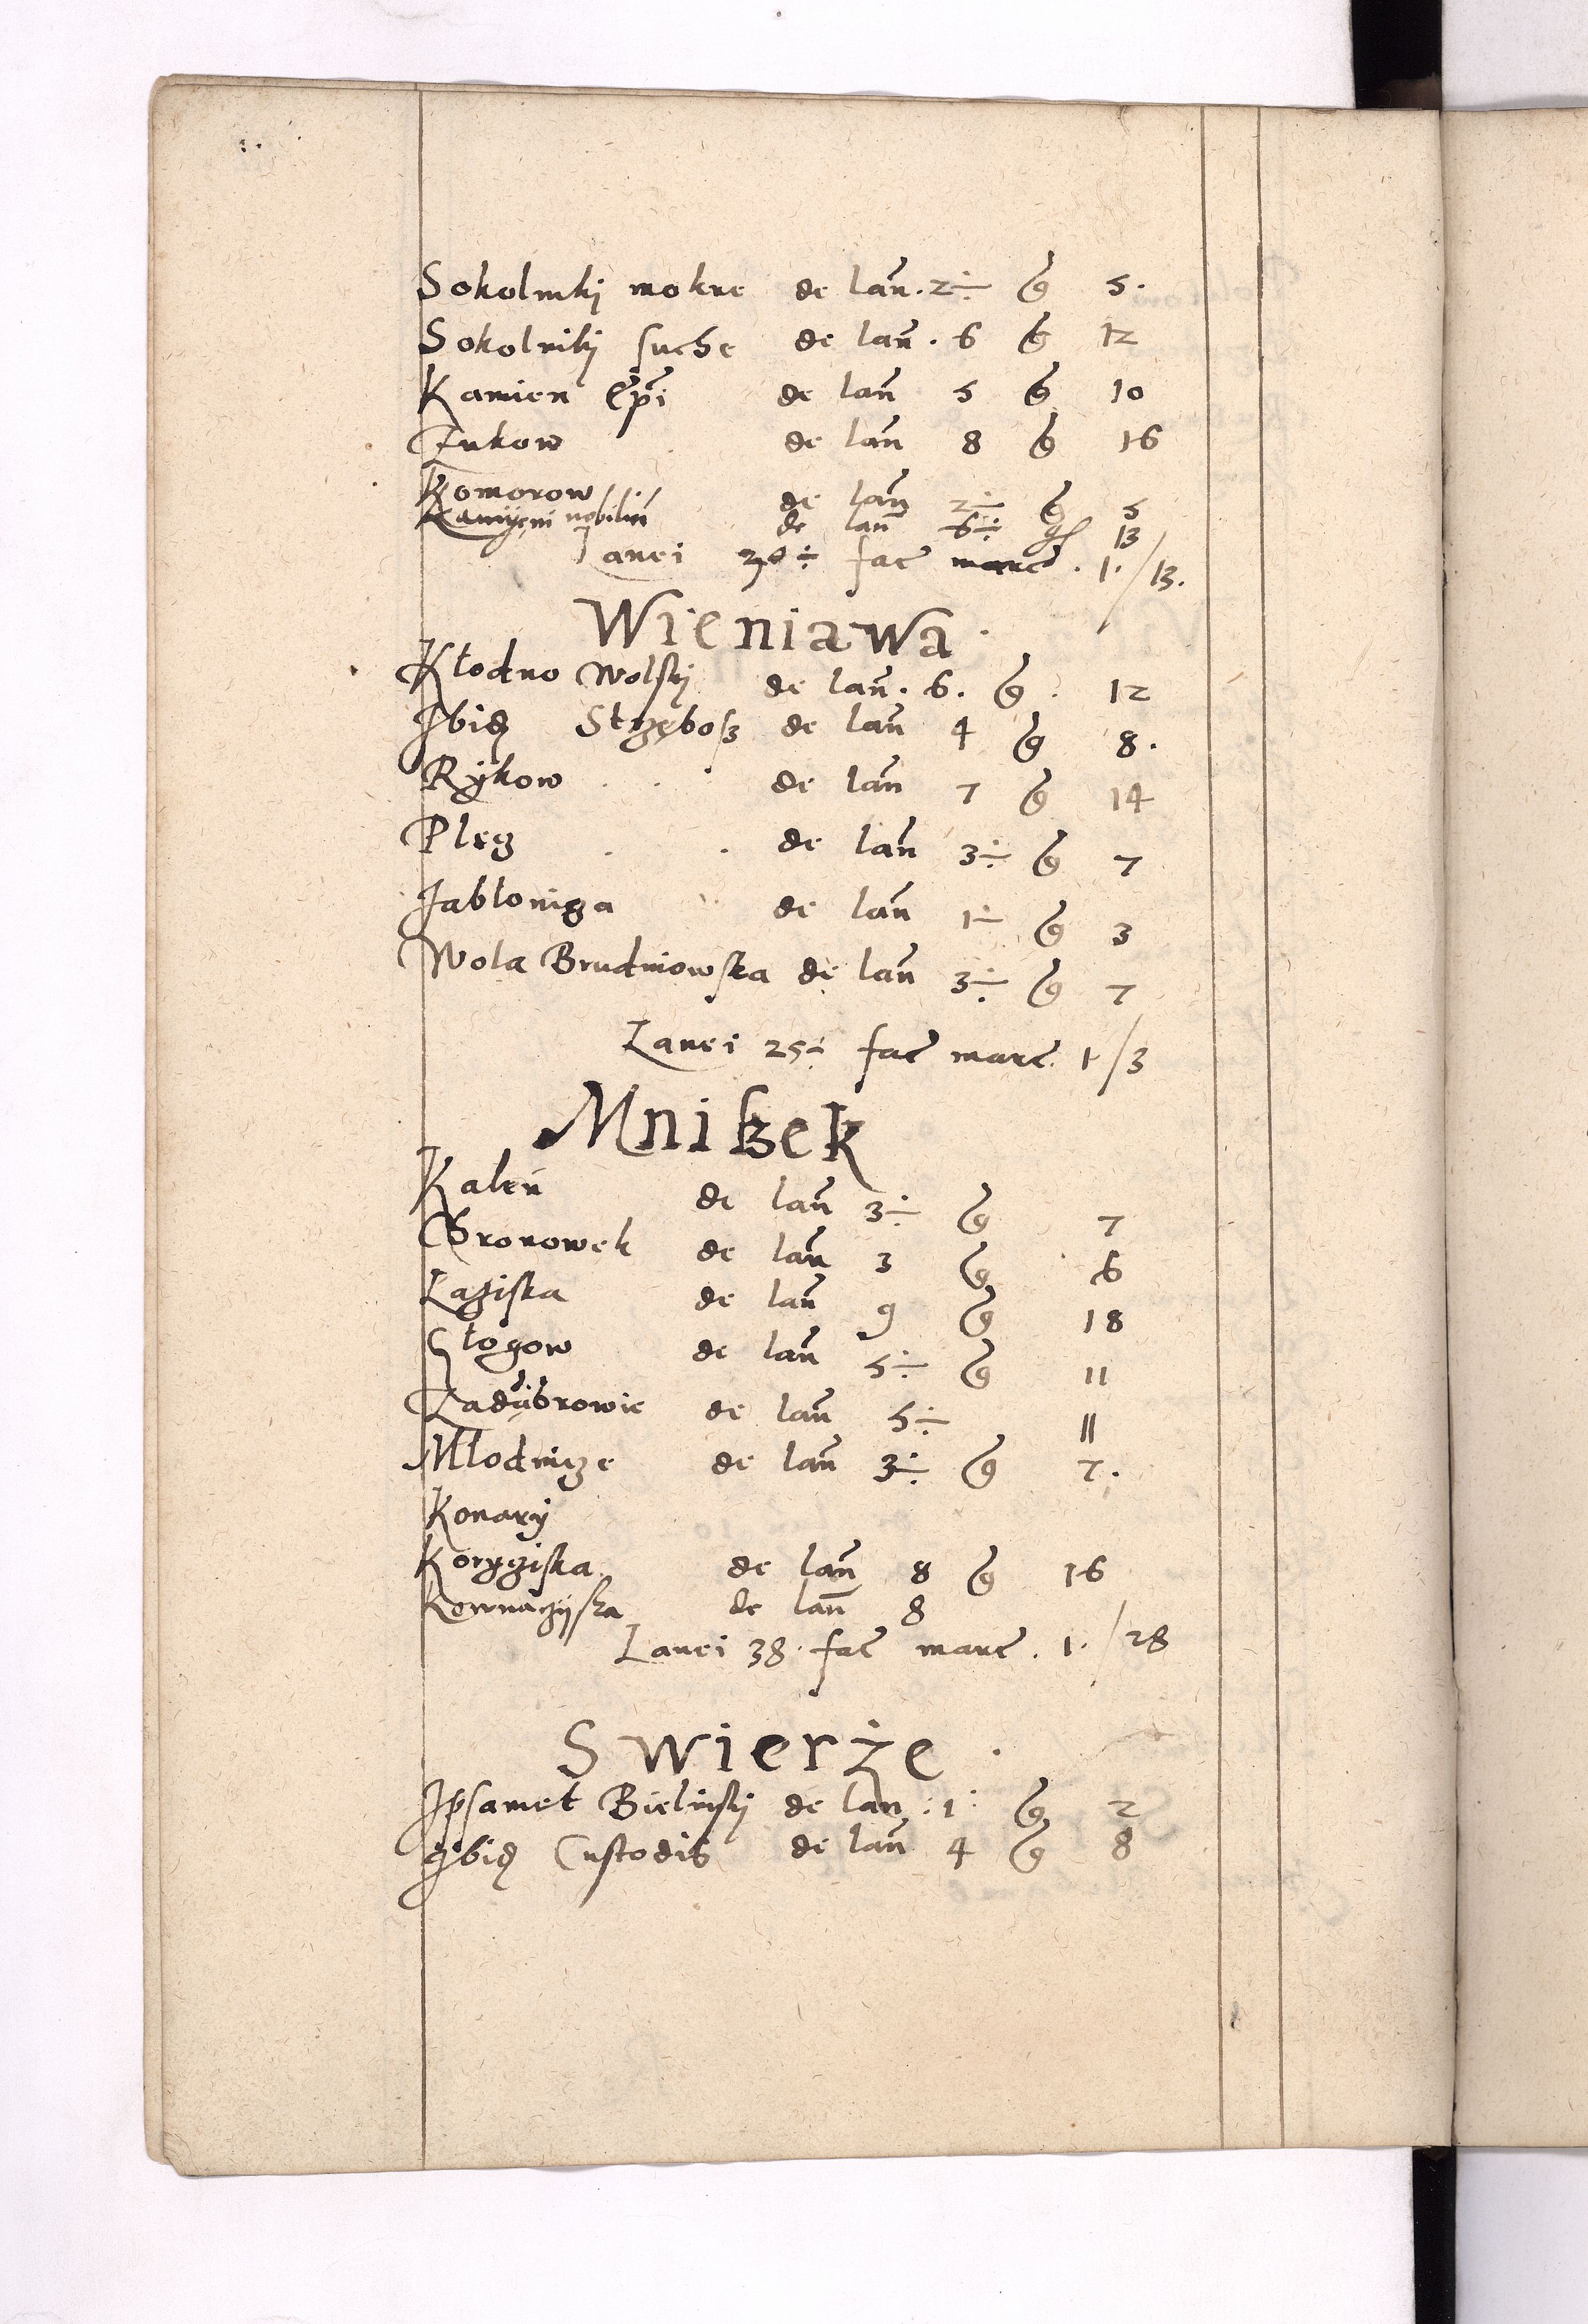 Sokolniki mokre de lan̄. 2÷ g 5.
Sokolniki suche de lan̄. 6 g 12
Kamien Ep̄i de lan̄ 5 g 10
Zukow de lan̄ 8 g 16
Komorow de lan̄ 2÷ g 5
Kamijeni nobiliū de lan̄ 6÷ g 13
Lanei 30÷ fac marc. 1./13.
Wieniawa.
Kłodno Wolskj de lan̄. 6. g. 12
Ibid Strzębosz de lan̄ 4 g 8.
Rykow . . . de lan̄ 7 g 14
Pleg . . de lan̄ 3÷ g 7
Jabłonicza de lan̄ 1÷ g 3
Wola Brudniowska de lan̄ 3÷ g 7
Lanei 25÷ fac marc. 1/3
Mniszek
Kaleń de lan̄ 3÷ g 7
Gronowek de lan̄ 3 g 6
Łaziska de lan̄ 9 g 18
Głogow de lan̄ 5÷ g 11
Zadąbrowie de lan̄ 5÷ 11
Młodnicze de lan̄ 3÷ g 7.
Konary
Koryciska de lan̄ 8 g 16
de lan̄ 8
Lanei 38. fac marc. 1./28
Swierże.
Ipsamet Bielinskj de lan. 1 g 2
Ibid Custodis de lan̄ 4 g 8